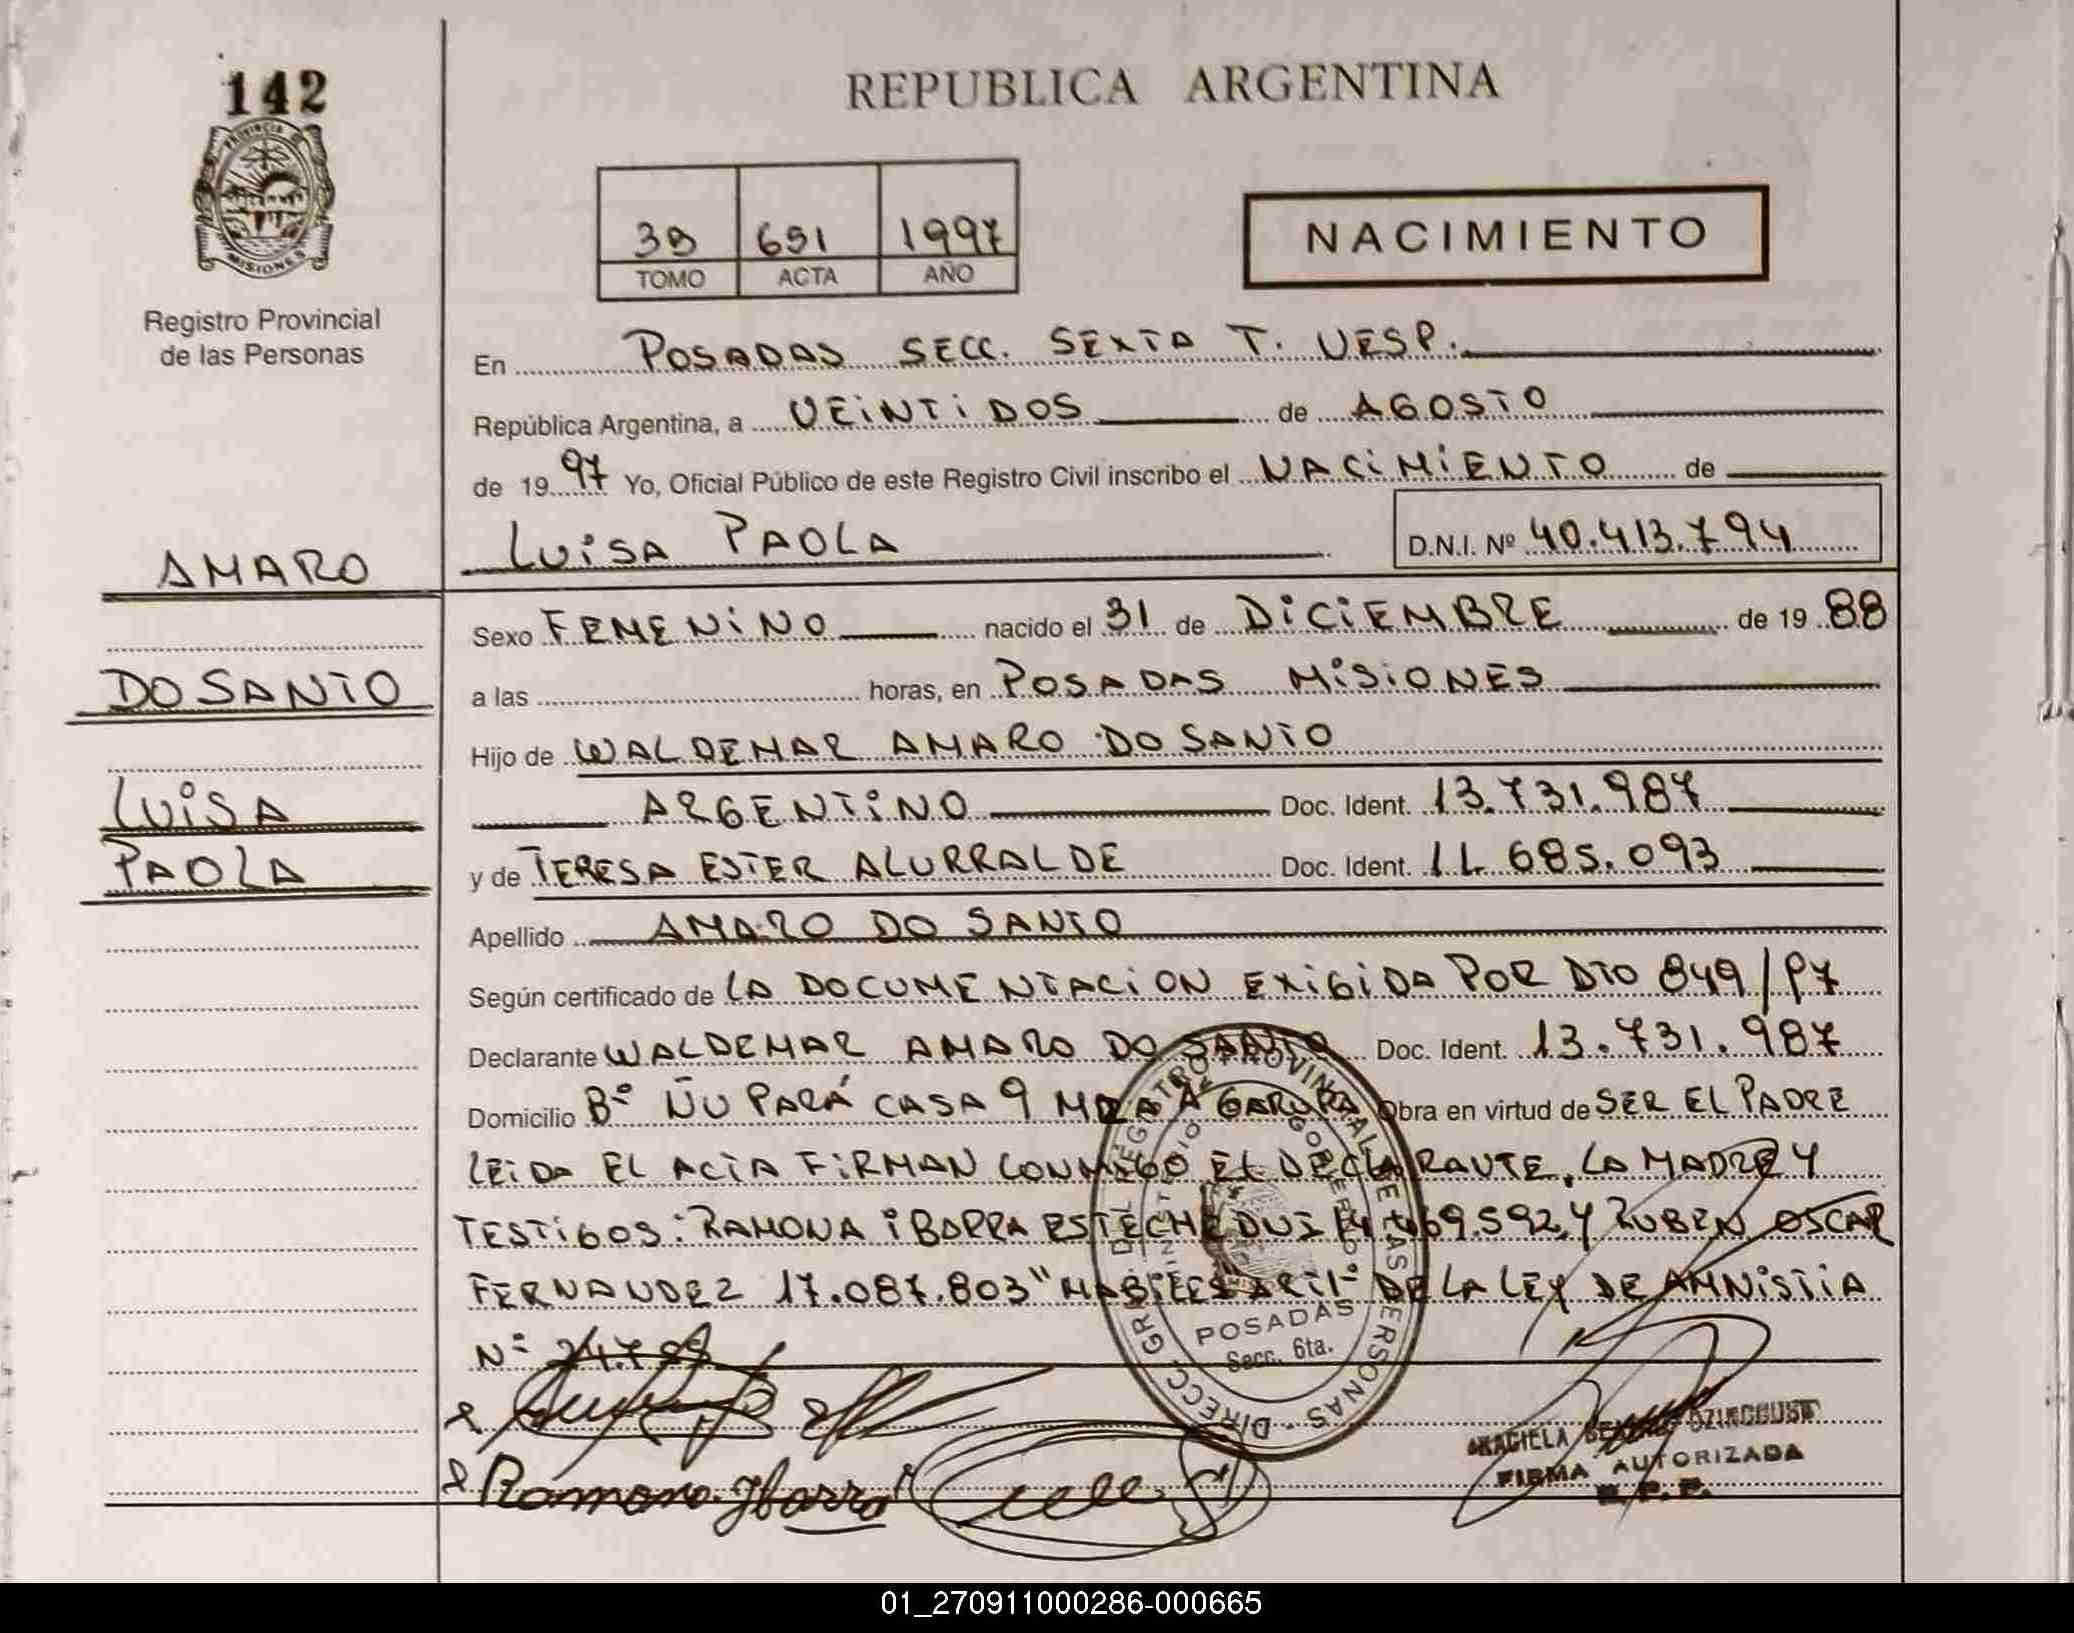 142
PROVINCIA DE
MISIONES
Registro Provincial
de las Personas
REPUBLICA ARGENTINA
39 691 1997
TOMO ACTA AÑO
NACIMIENTO
En POSADAS SECC. SEXTA T. VESP.
República Argentina, a VEINTIDOS de AGOSTO
de 1997 Yo, Oficial Público de este Registro Civil inscribo el NACIMIENTO de
LUISA PAOLA D.N.I. Nº 40.413.794
AMARO
DO SANTO
LUISA
PAOLA
Sexo FEMENINO nacido el 31 de DICIEMBRE de 1988
a las horas, en POSADAS MISIONES
Hijo de WALDEMAR AMARO DO SANTO
ARGENTINO Doc. Ident. 13.731.987
y de TERESA ESTER ALURRALDE Doc. Ident. 11.685.093
Apellido AMARO DO SANTO
Según certificado de LA DOCUMENTACION EXIGIDA POR DTO 849/97
Declarante WALDEMAR AMARO DO SANTO Doc. Ident. 13.731.987
Domicilio Bº ÑU PARÁ CASA 9 MZA A GARUPA Obra en virtud de SER EL PADRE
LEIDA EL ACTA FIRMAN CONMIGO EL DECLARANTE, LA MADRE Y
TESTIGOS: RAMONA IBARRA ESTECHE DUI 69.592 Y RUBEN OSCAR
FERNANDEZ 17.087.803 "HABILES" ART 1º DE LA LEY DE AMNISTIA
Nº
DIRECC. GRAL. DEL REGISTRO PROVINCIAL DE LAS PERSONAS
POSADAS
Secc. 6ta.
Ramona Ibarra
FIRMA AUTORIZADA
R.P.P.
01_270911000286-000665